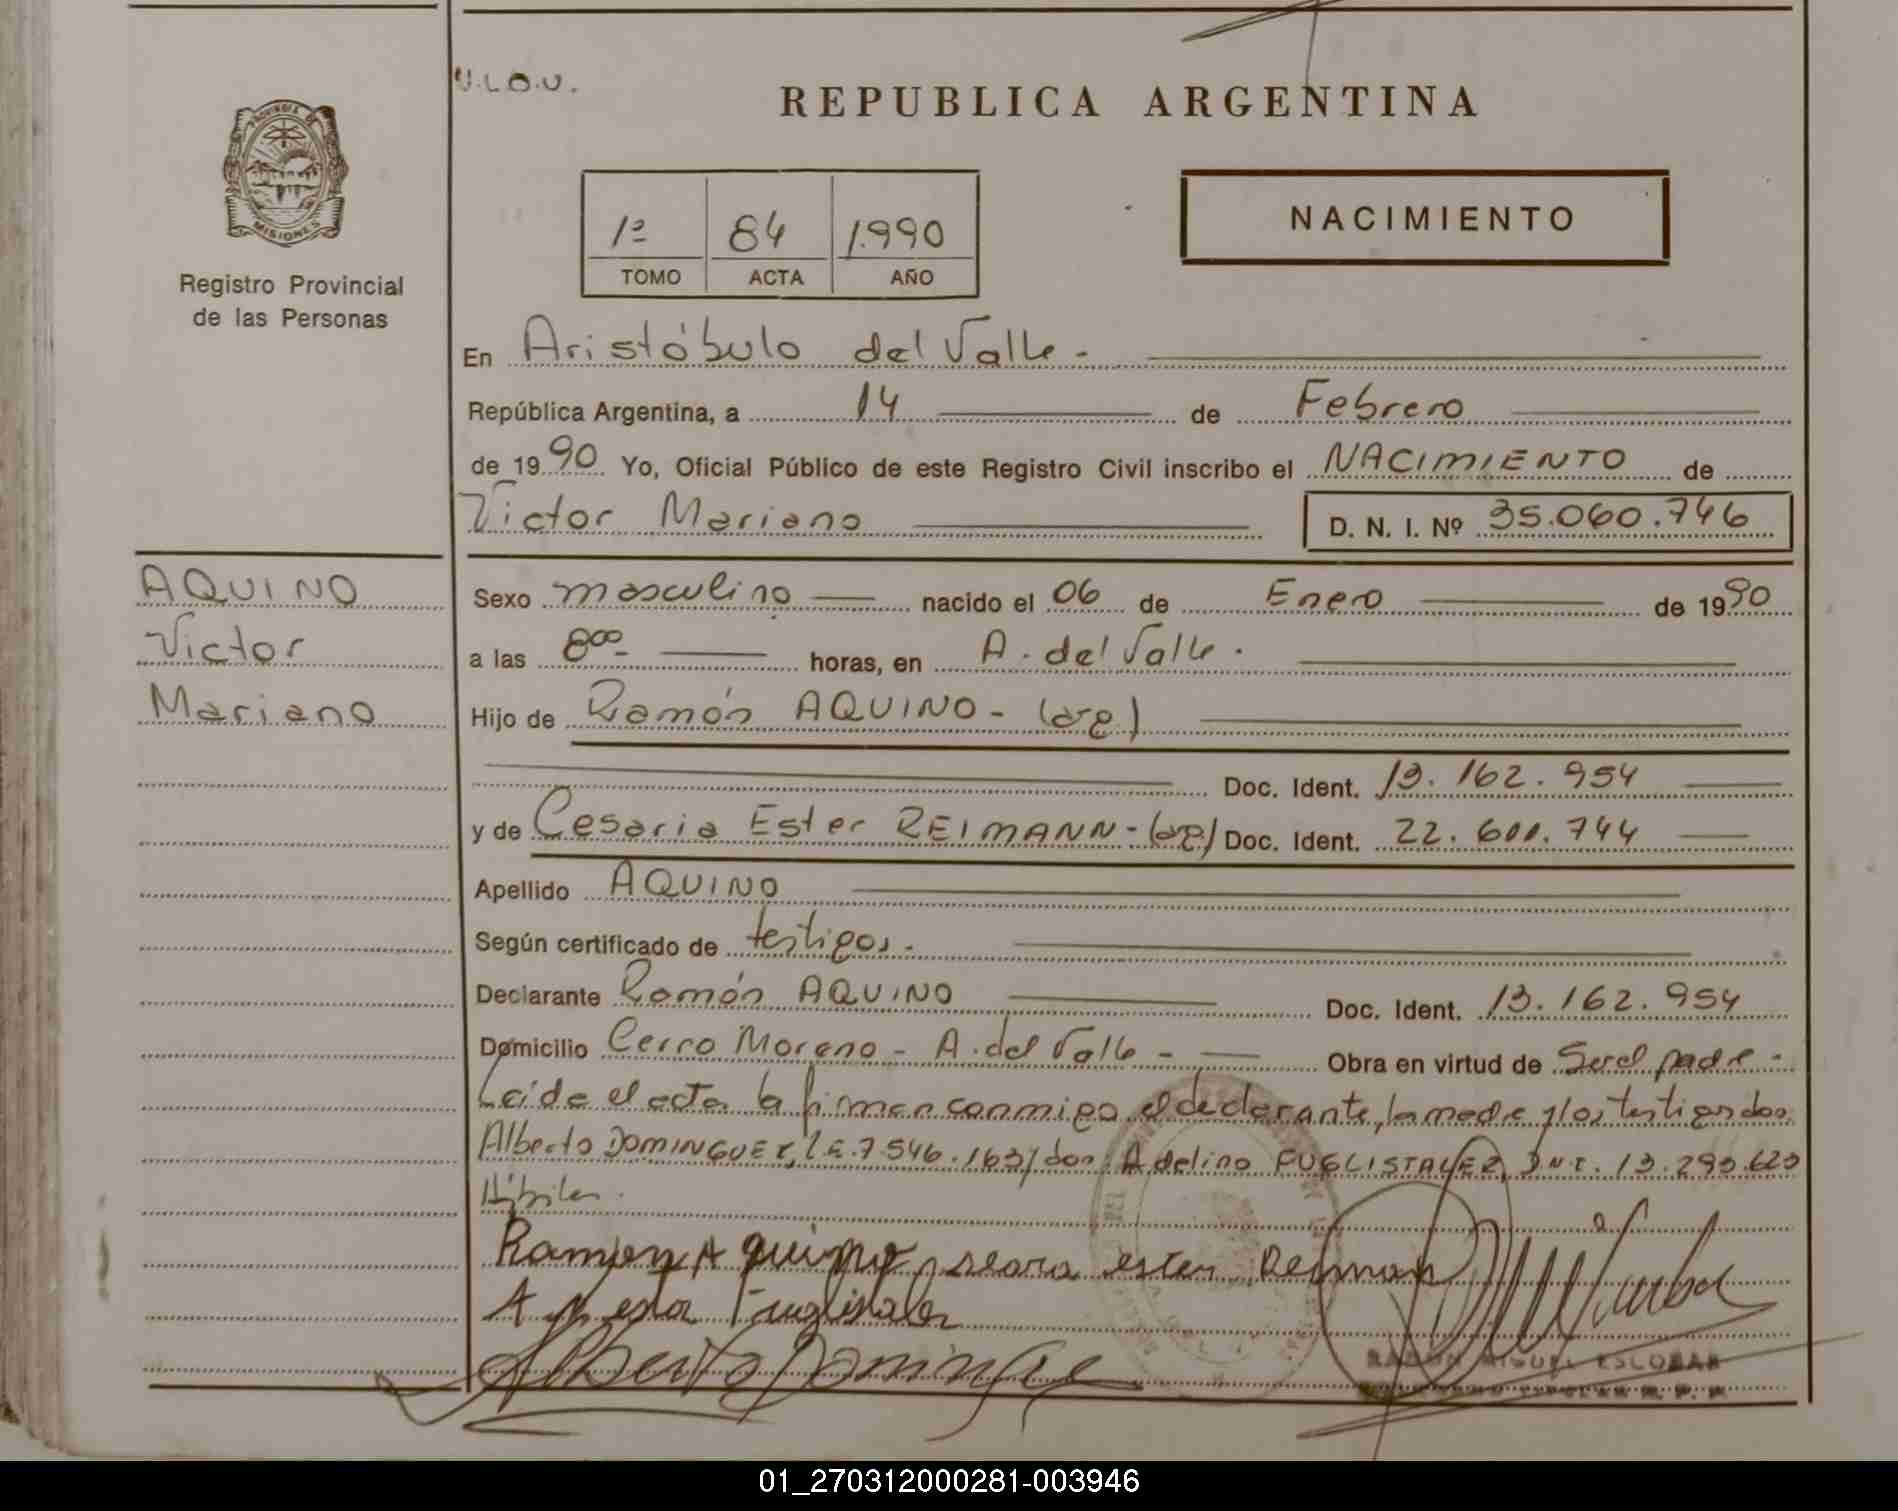 V.L.O.V.
REPUBLICA ARGENTINA
PROVINCIA DE
MISIONES
Registro Provincial
de las Personas
1º 84 1.990
TOMO ACTA AÑO
NACIMIENTO
En Aristóbulo del Valle.-
República Argentina, a 14 de Febrero
de 1990. Yo, Oficial Público de este Registro Civil inscribo el NACIMIENTO de
Victor Mariano D. N. I. Nº 35.060.746
AQUINO
Victor
Mariano
Sexo masculino nacido el 06 de Enero de 1990
a las 8⁰⁰- horas, en A. del Valle.
Hijo de Ramón AQUINO - (arg)
Doc. Ident. 13.162.954
y de Cesaria Ester REIMANN - (arg) Doc. Ident. 22.601.744
Apellido AQUINO
Según certificado de testigos.
Declarante Ramón AQUINO Doc. Ident. 13.162.954
Domicilio Cerro Moreno - A. del Valle - Obra en virtud de Ser el padre -
Leída el acta la firman conmigo el declarante, la madre y los testigos don
Alberto DOMINGUEZ, L.E. 7.546.163 y don Adelino FUGLISTALER, D.N.I. 13.293.623
Hábiles.
Ramon Aquino ester Reiman
Fuglistaler
Alberto Domingue
RAMON MIGUEL ESCOBAR
01_270312000281-003946